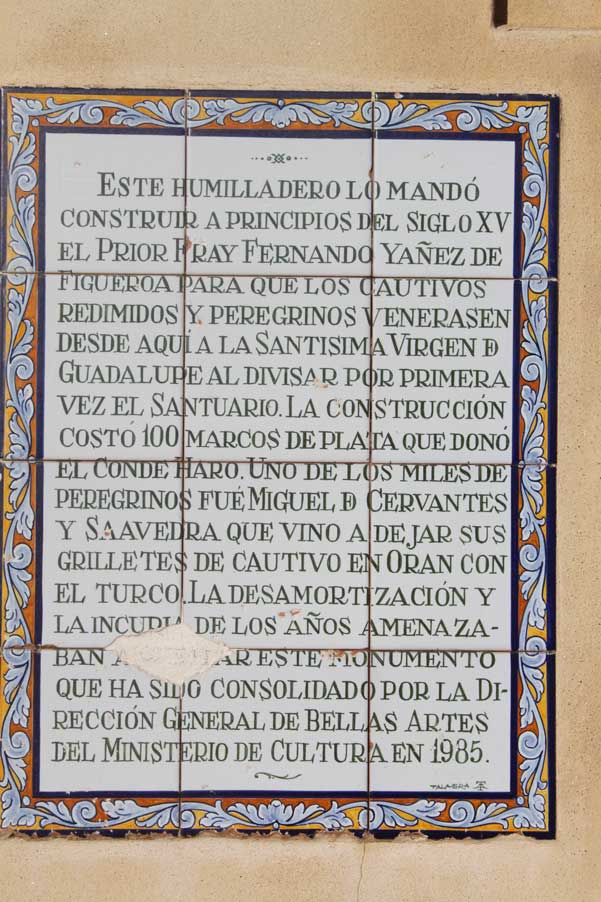 ESTE HUMILLADERO LO MANDÓ
CONSTRUIR A PRINCIPIOS DEL SIGLO XV
EL PRIOR FRAY FERNANDO YAÑEZ DE
FIGUEROA PARA QUE LOS CAUTIVOS
REDIMIDOS Y PEREGRINOS VENERASEN
DESDE AQUÍ A LA SANTISIMA VIRGEN D
GUADALUPE AL DIVISAR POR PRIMERA
VEZ EL SANTUARIO. LA CONSTRUCCIÓN
COSTÓ 100 MARCOS DE PLATA QUE DONÓ
EL CONDE HARO. UNO DE LOS MILES DE
PEREGRINOS FUÉ MIGUEL D CERVANTES
Y SAAVEDRA QUE VINO A DEJAR SUS
GRILLETES DE CAUTIVO EN ORAN CON
EL TURCO. LA DESAMORTIZACIÓN Y
LA INCURIA DE LOS AÑOS AMENAZA-
BAN A ESTE MONUMENTO
QUE HA SIDO CONSOLIDADO POR LA DI-
RECCIÓN GENERAL DE BELLAS ARTES
DEL MINISTERIO DE CULTURA EN 1985.
TALAVERA